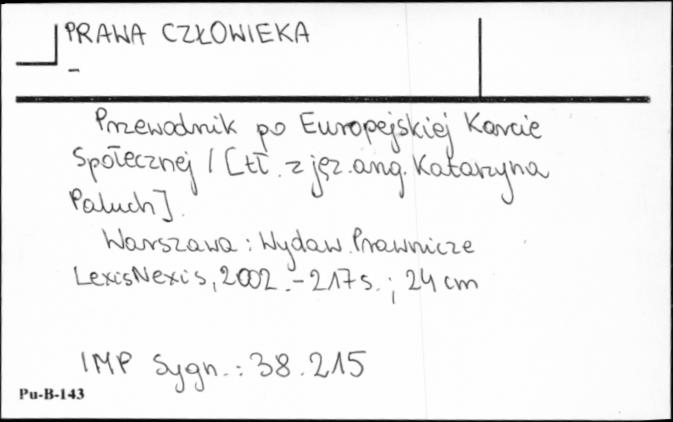 PRAWA CZŁOWIEKA
-
Przewodnik po Europejskiej Karcie
Społecznej / [tł. z jęz. ang. Katarzyna
Paluch].
Warszawa : Wydaw. Prawnicze
LexisNexis, 2002. - 217 s. ; 24 cm
IMP Sygn. : 38.215
Pu-B-143